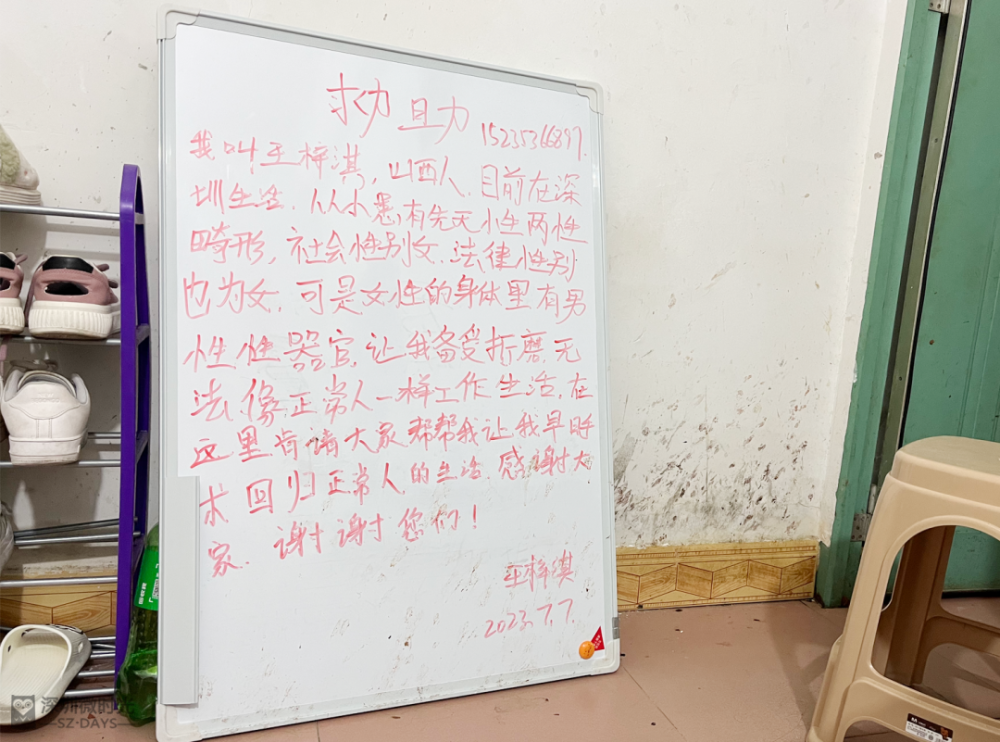 求助 15235366897.
我叫王梓淇,山西人.目前在深
圳生活.从小患有先天性两性
畸形,社会性别女.法律性别
也为女.可是女性的身体里有男
性性器官.让我备受折磨无
法像正常人一样工作生活.在
这里肯请大家帮帮我让我早时
求回归正常人的生活.感谢大
家.谢谢您们!
王梓淇
2023.7.7.
深圳微时光
SZ·DAYS